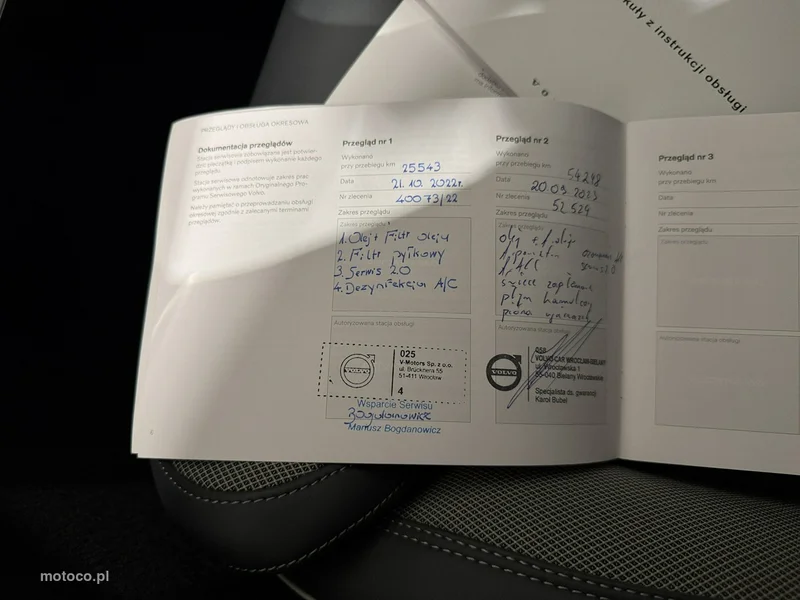 kuły z instrukcji obsługi
PRZEGLĄDY I OBSŁUGA OKRESOWA
Dokumentacja przeglądów
Stacja serwisowa zobowiązana jest potwierdzić pieczątką i podpisem wykonanie każdego
przeglądu.
Stacja serwisowa odnotowuje zakres prac
wykonanych w ramach Oryginalnego Programu Serwisowego Volvo.
Należy pamiętać o przeprowadzaniu obsługi
okresowej zgodnie z zalecanymi terminami
przeglądów.
Przegląd nr 1
Wykonano
przy przebiegu km 25543
Data 21.10.2022r.
Nr zlecenia 40073/22
Zakres przeglądu
Zakres przeglądu
1. Olej + Filtr oleju
2. Filtr pyłkowy
3. Serwis 2.0
4. Dezynfekcja A/C
Autoryzowana stacja obsługi
VOLVO
025
V-Motors Sp. z o.o.
ul. Brücknera 55
51-411 Wrocław
4
Wsparcie Serwisu
Bogdanowicz
Mariusz Bogdanowicz
Przegląd nr 2
Wykonano
przy przebiegu km 54248
Data 20.09.2023
Nr zlecenia 52524
Zakres przeglądu
Zakres przeglądu
świece zapłonowe
płyn hamulcowy
Autoryzowana stacja obsługi
VOLVO
VOLVO-CAR WROCŁAW-BIELANY
ul. Wrocławska 1
55-040 Bielany Wrocławskie
Specjalista ds. gwarancji
Karol Bubel
Przegląd nr 3
Wykonano
przy przebiegu km
Data
Nr zlecenia
Zakres przeglądu
Zakres przeglądu
Autoryzowana stacja obsługi
motoco.pl